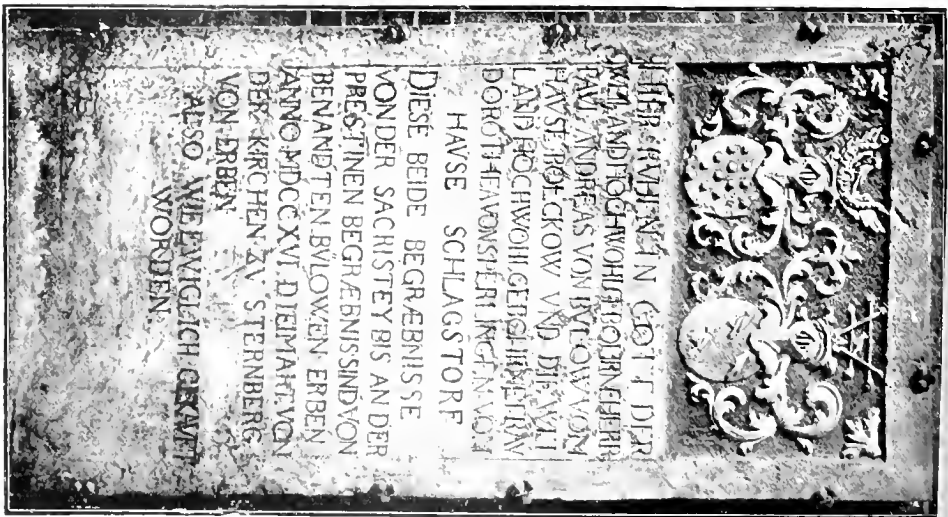 HIER RVHEN IN GOTT DER
WEYLAND HOCHWOHLGEBORNE HERR
ANDREAS VON BVLOW VOM
HAVSE ROLCKOW VND DIE WEI
LAND HOCHWOHLGEB FRAV
DOROTHEA VON SPERLINGEN VOM
HAVSE SCHLAGSTORF
DIESE BEIDE BEGRÆBNISSE
VON DER SACRISTEY BIS AN DER
PRESTINEN BEGRÆBNIS SIND VON
BENANDTEN BVLOWEN ERBEN
ANNO MDCCXVI DIE MAHL VON
DER KIRCHEN ZV STERNBERG
VON ERBEN
AESO WIE EWIGLICH GEKAVFT
WORDEN